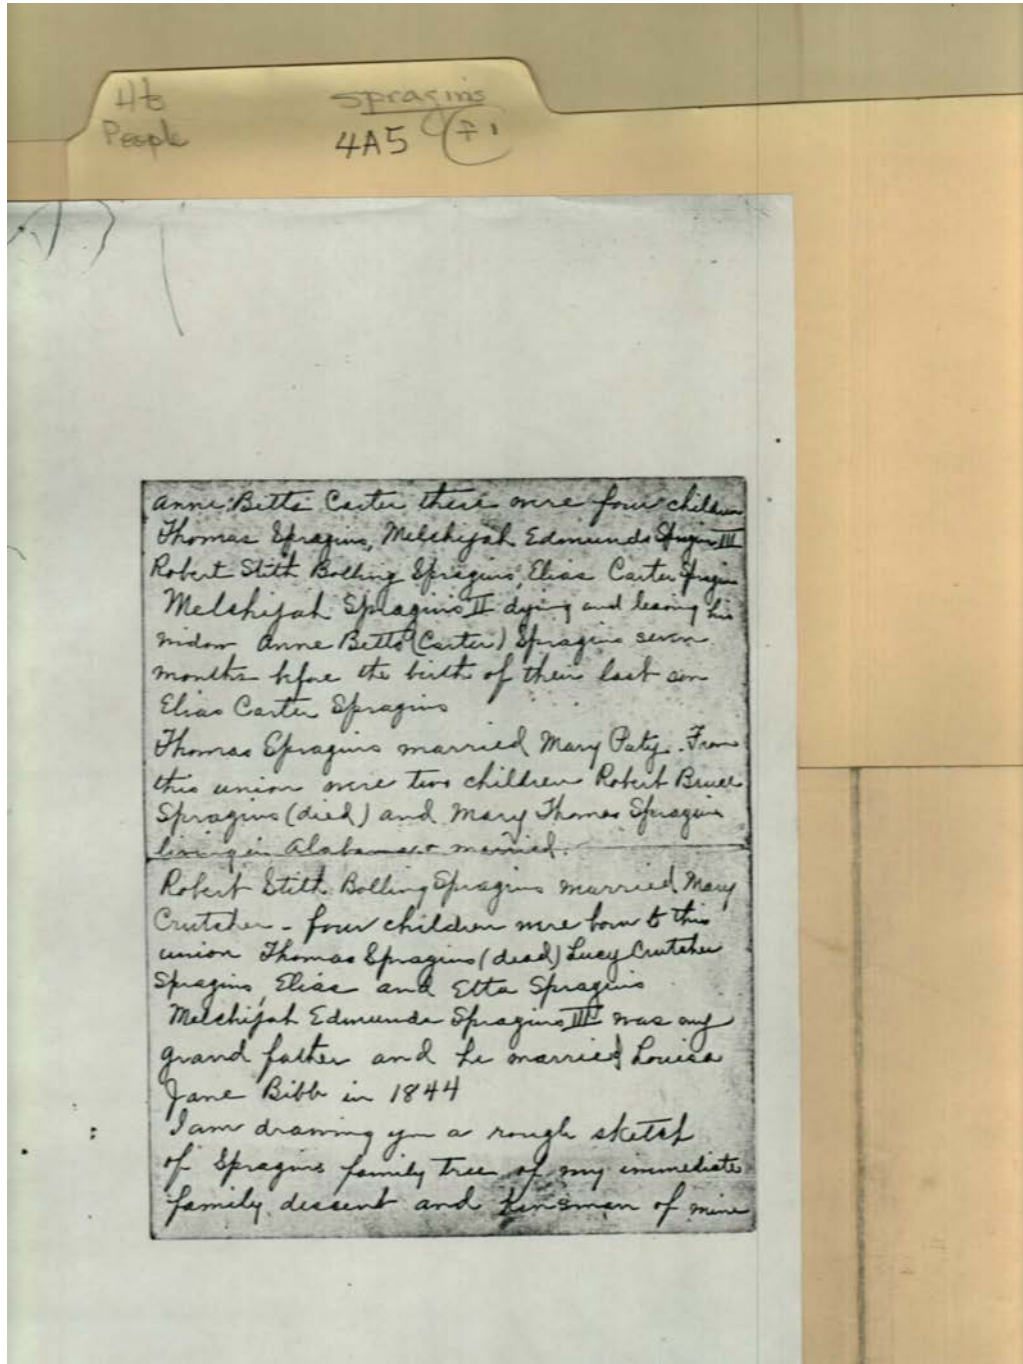 Spragins
People
4A5
Anne Betts Carter there were four children
Thomas Spragins, Melchijah Edmunds Spragins III
Robert Stith Bolling Spragins, Elias Carter Spragins
Melchijah Spragins II dying and leaving his
widow Anne Betts (Carter) Spragins seven
months before the birth of their last son
Elias Carter Spragins
Thomas Spragins married Mary Paty. From
this union were two children Robert Bruce
Spragins (died) and Mary Thomas Spragins
living in Alabama & married.
Robert Stith Bolling Spragins married Mary
Crutcher - four children were born to this
union Thomas Spragins (dead) Lucy Crutcher
Spragins, Elias and Etta Spragins
Melchijah Edmunds Spragins III was my
grand father and he married Louisa
Jane Bibb in 1844
I am drawing you a rough sketch
of Spragins family tree of my immediate
family descent and kinsman of mine